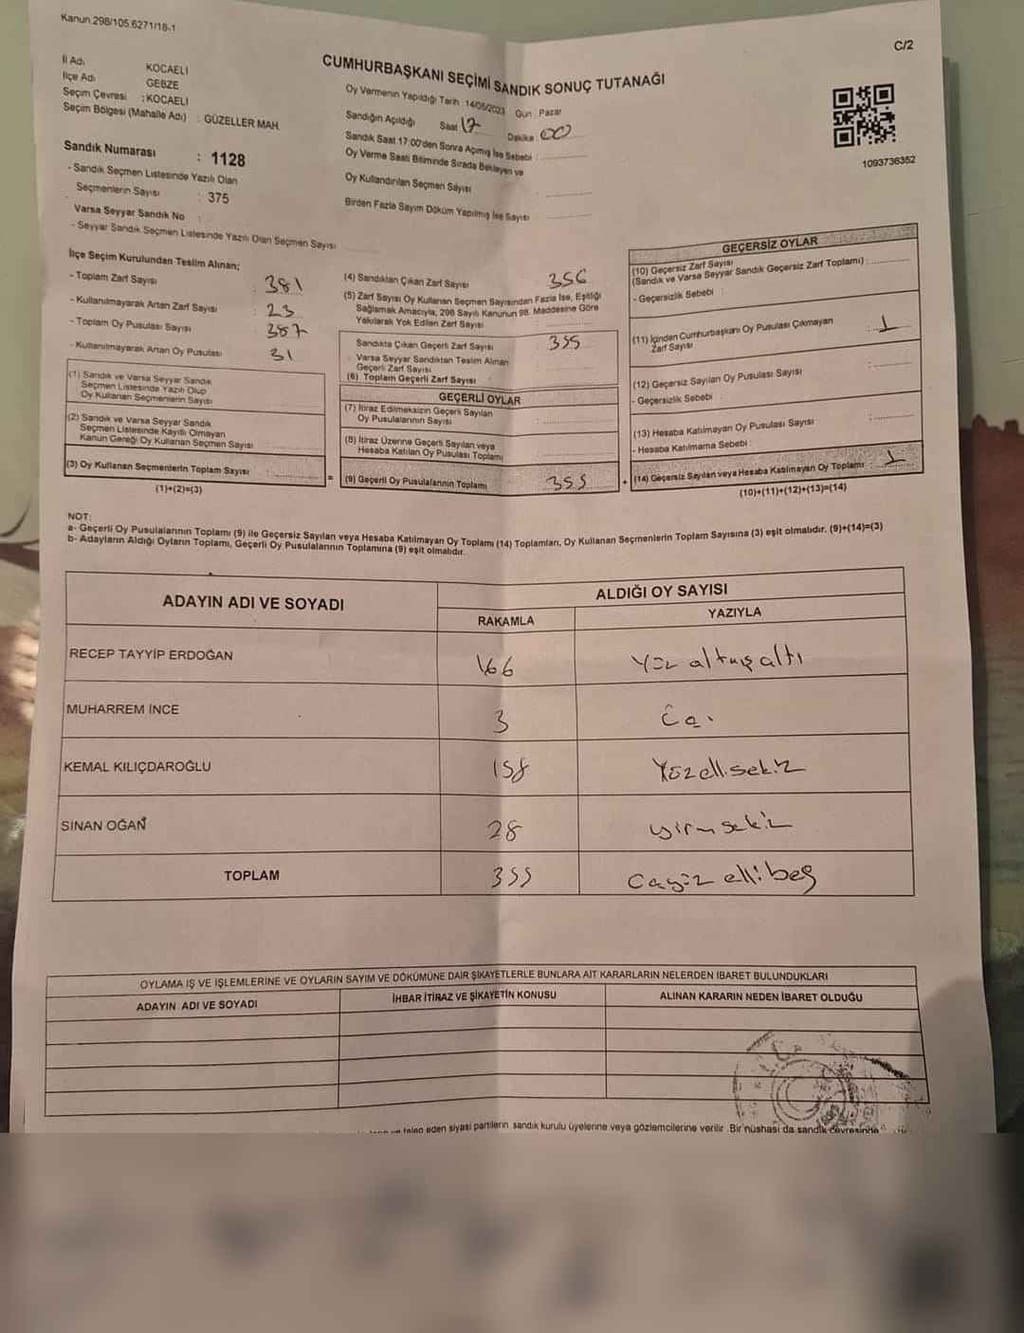 Kanun 298/105.6271/18-1
C/2
CUMHURBAŞKANI SEÇİMİ SANDIK SONUÇ TUTANAĞI
İl Adı KOCAELİ
İlçe Adı GEBZE
Seçim Çevresi : KOCAELİ
Seçim Bölgesi (Mahalle Adı) : GÜZELLER MAH.
Sandık Numarası : 1128
- Sandık Seçmen Listesinde Yazılı Olan
Seçmenlerin Sayısı : 375
Varsa Seyyar Sandık No :
- Seyyar Sandık Seçmen Listesinde Yazılı Olan Seçmen Sayısı
Oy Vermenin Yapıldığı Tarih : 14/05/2023 Gün : Pazar
Sandığın Açıldığı Saat 17 Dakika : 00
Sandık Saat 17:00'den Sonra Açılmış İse Sebebi :
Oy Verme Saati Bitiminde Sırada Bekleyen ve
Oy Kullandırılan Seçmen Sayısı
Birden Fazla Sayım Döküm Yapılmış İse Sayısı
1093736352
İlçe Seçim Kurulundan Teslim Alınan;
- Toplam Zarf Sayısı : 381
- Kullanılmayarak Artan Zarf Sayısı : 23
- Toplam Oy Pusulası Sayısı : 387
- Kullanılmayarak Artan Oy Pusulası : 31
(1) Sandık ve Varsa Seyyar Sandık
Seçmen Listesinde Yazılı Olup
Oy Kullanan Seçmenlerin Sayısı
(2) Sandık ve Varsa Seyyar Sandık
Seçmen Listesinde Kayıtlı Olmayan
Kanun Gereği Oy Kullanan Seçmen Sayısı
(3) Oy Kullanan Seçmenlerin Toplam Sayısı :
(1)+(2)=(3)
(4) Sandıktan Çıkan Zarf Sayısı 356
(5) Zarf Sayısı Oy Kullanan Seçmen Sayısından Fazla İse, Eşitliği
Sağlamak Amacıyla, 298 Sayılı Kanunun 98. Maddesine Göre
Yakılarak Yok Edilen Zarf Sayısı
Sandıkta Çıkan Geçerli Zarf Sayısı 355
Varsa Seyyar Sandıktan Teslim Alınan
Geçerli Zarf Sayısı
(6) Toplam Geçerli Zarf Sayısı
GEÇERLİ OYLAR
(7) İtiraz Edilmeksizin Geçerli Sayılan
Oy Pusulalarının Sayısı
(8) İtiraz Üzerine Geçerli Sayılan veya
Hesaba Katılan Oy Pusulası Toplamı
(9) Geçerli Oy Pusulalarının Toplamı 355
GEÇERSİZ OYLAR
(10) Geçersiz Zarf Sayısı
(Sandık ve Varsa Seyyar Sandık Geçersiz Zarf Toplamı) :
- Geçersizlik Sebebi :
(11) İçinden Cumhurbaşkanı Oy Pusulası Çıkmayan
Zarf Sayısı : 1
(12) Geçersiz Sayılan Oy Pusulası Sayısı :
- Geçersizlik Sebebi :
(13) Hesaba Katılmayan Oy Pusulası Sayısı :
- Hesaba Katılmama Sebebi :
(14) Geçersiz Sayılan veya Hesaba Katılmayan Oy Toplamı : 1
(10)+(11)+(12)+(13)=(14)
NOT:
a- Geçerli Oy Pusulalarının Toplamı (9) ile Geçersiz Sayılan veya Hesaba Katılmayan Oy Toplamı (14) Toplamları, Oy Kullanan Seçmenlerin Toplam Sayısına (3) eşit olmalıdır. (9)+(14)=(3)
b- Adayların Aldığı Oyların Toplamı, Geçerli Oy Pusulalarının Toplamına (9) eşit olmalıdır.
ADAYIN ADI VE SOYADI
ALDIĞI OY SAYISI
RAKAMLA YAZIYLA
RECEP TAYYİP ERDOĞAN 166 Yüz altmış altı
MUHARREM İNCE 3 Üç.
KEMAL KILIÇDAROĞLU 158 Yüzellisekiz
SİNAN OĞAN 28 yirmisekiz
TOPLAM 355 üçyüz ellibeş
OYLAMA İŞ VE İŞLEMLERİNE VE OYLARIN SAYIM VE DÖKÜMÜNE DAİR ŞİKAYETLERLE BUNLARA AİT KARARLARIN NELERDEN İBARET BULUNDUKLARI
ADAYIN ADI VE SOYADI İHBAR İTİRAZ VE ŞİKAYETİN KONUSU ALINAN KARARIN NEDEN İBARET OLDUĞU
talep eden siyasi partilerin sandık kurulu üyelerine veya gözlemcilerine verilir. Bir nüshası da sandık çevresinde